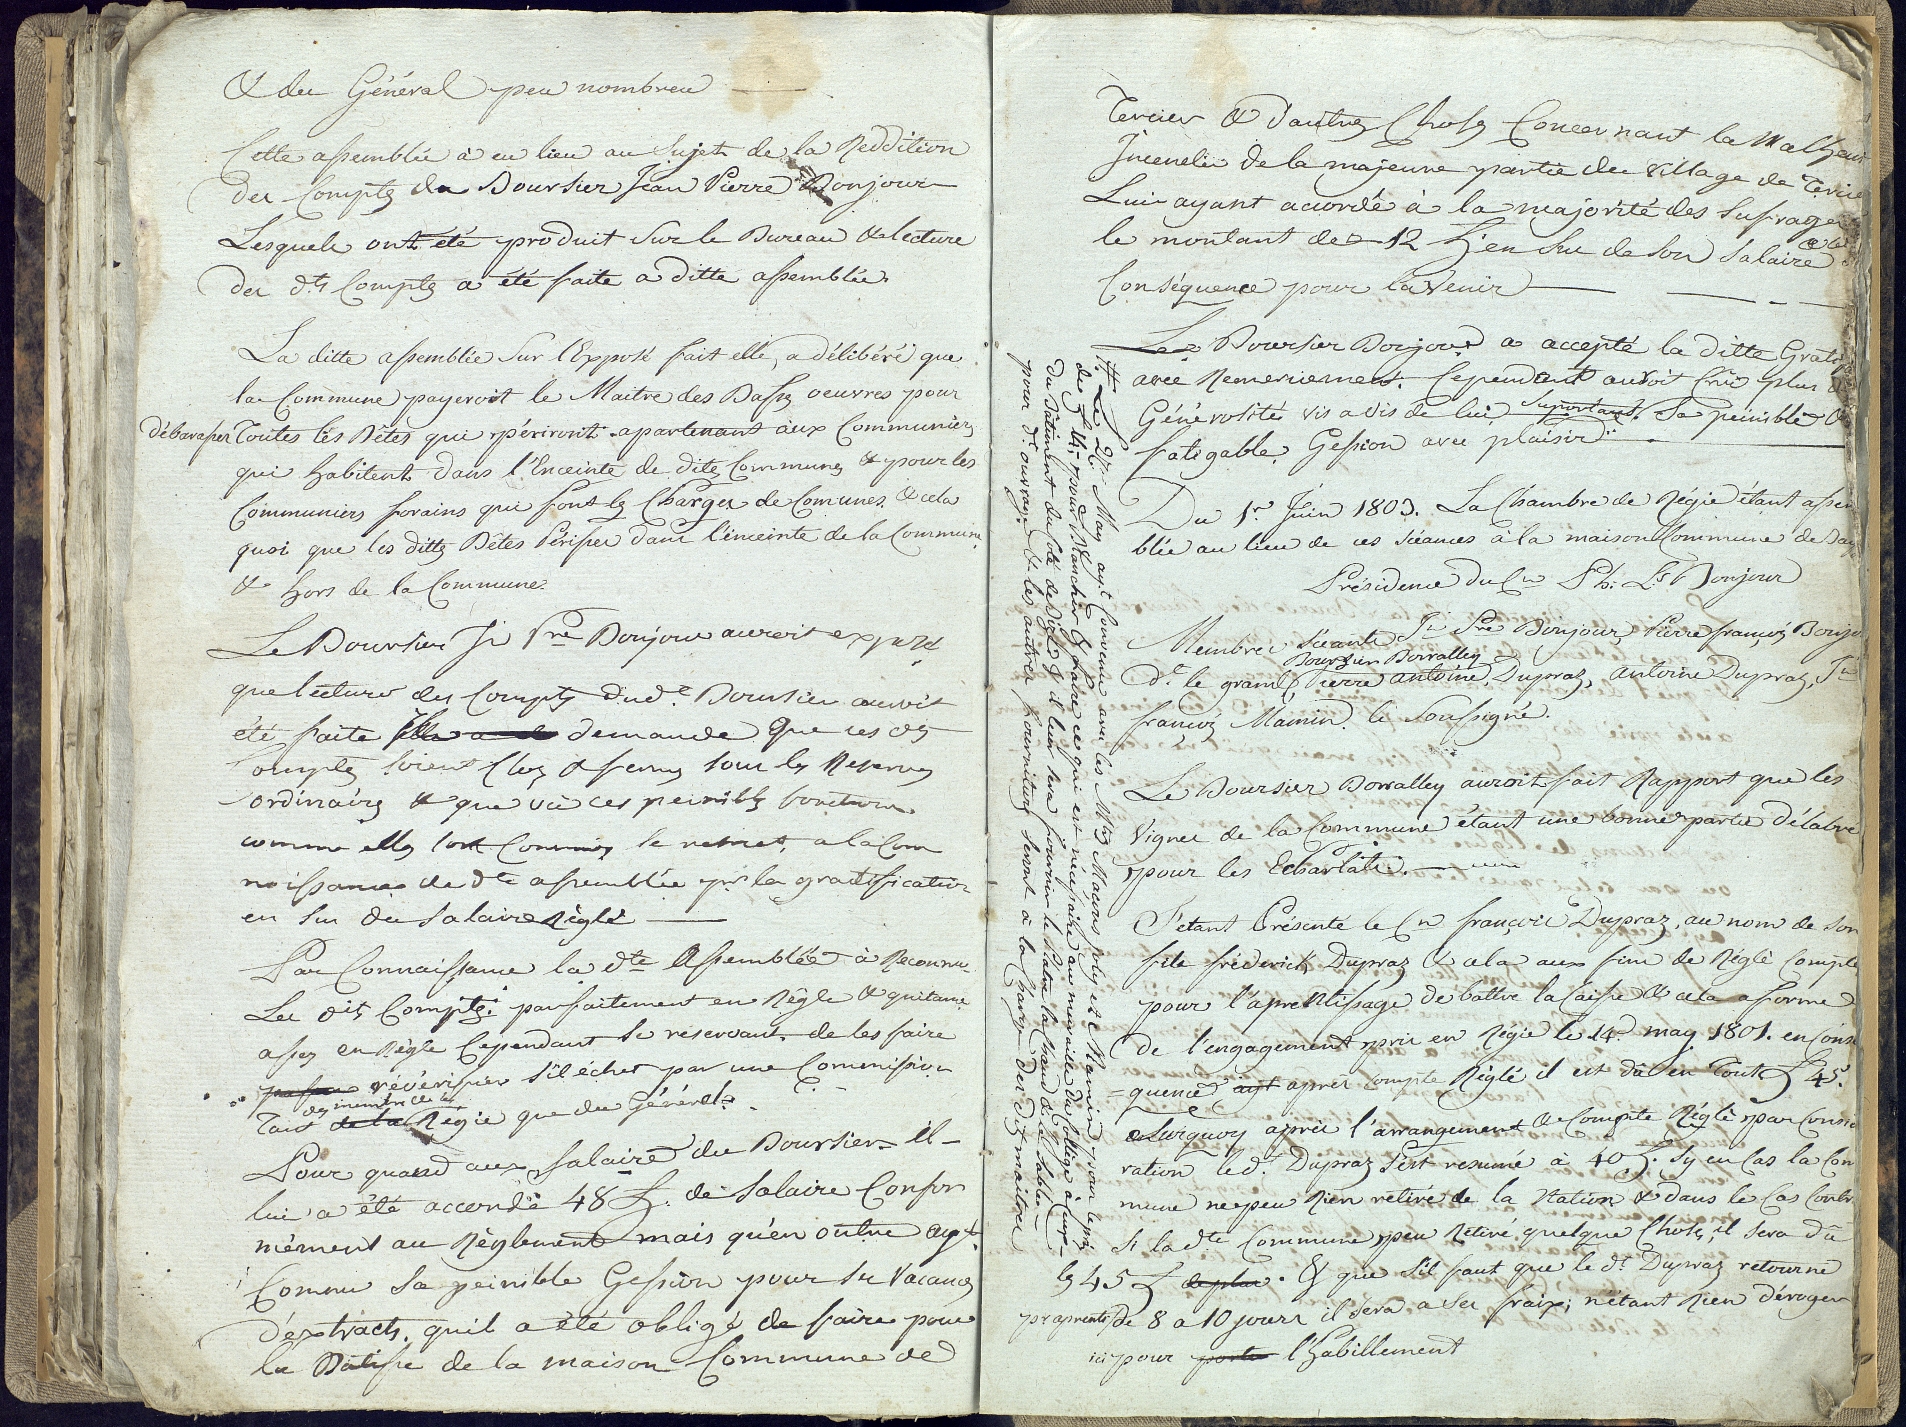 & du Général peu nombreu
Cette assemblée à eu lieu au Sujet de la Reddition
des Compts du Boursier Jean Pierre Bonjour
Lesquels ont été produit Sur le Bureau & lecture
des dts Compts a été faite a ditte assemblée
La ditte assemblée Sur l'Epposé fait elle, a délibéré que
la Commune payeroit le Maitre des Basses oeuvres pour
débaraser Toutes les Bêtes qui périront apartenant aux Communiers
qui habitent dans l'Enceinte de dite Commune & pour les
Communiers forains qui font les Charges de Comunes & cela
quoi que les dittes Bêtes Périsse dans l'enceinte de la Commune
& hors de la Commune
Le Boursier Jn Pre Bonjour auroit exposé
que lecture des Compts dud. Boursier auroit
été faite demande que ces dts
Compts soient Clos & fermés sous les Reserves
ordinaires & que vu ces penibles
comme elles sont Connues se remet, a la Con
noissance de dte assemblée pr la gratification
en Sus du Salaire Réglé
Par Connaissance la dte Assemblée à Reconnu
Les dits Compts parfaitement en Règle & quitance
assez en Règle Cependant se reservant de les faire
révérifier s'il échet par une Commission
des membre de la
Tant de la Régie que du Général
Pour quand aux Salaire du Boursier il
lui a été accordé 48 L. de Salaire Confor
mément au Réglement mais qu'en outre ayt
Connu Sa peinible Gession pour ses Vacances
d'extracts qu'il a été obligé de faire pour
la Batisse de la maison Commune de
Tercier & d'autres Choses Concernant le Malheur
Incendie de la majeure partie du Village de Tercier
Lui ayant accordé à la majorité des Sufrages
le montant de 12 L. en Sus de Son Salaire
Conséquence pour l'avenir
Le Boursier Bonjour a accepté la ditte Grati
avec Remerciement. Cependant auroit Crû plus de
Générosité vis a vis de lui Suportant Sa peinible &
fatigable Gession avec plaisir
Du 1r Juin 1803. La Chambre de Régie étant assem
blée au lieu de ces Séances à la maison Commune de
Présidence du Cn Ph. Ls Bonjour
Membres Séants Jn Pre Bonjour, Pierre françois Bonjo
Boursier Dorralley
dt le grand, Pierre antoine Dupraz, antoine Dupraz, Jn
françois Mamin le Soussigné.
Le Boursier Dorralley auroit fait Rapport que les
Vignes de la Commune étant une bonne partie délabré
pour les Echarlats.
S'etant Présenté le Cn françois Dupraz, au nom de son
fils fréderich Dupraz & cela aux fins de Réglé Compte
pour l'aprentissage de battre la Caisse & cela a forme
de l'engagement pris en Régie le 14e may 1801. en Consé
quence après compte Réglé il est dû en Tout L 45.
Surquoy après l'arrangement & Compte Réglé par Consid
ration le dt Dupraz s'est resumé à 40 L. Sy en Cas la Com
mune ne peu Rien retiré de la Nation & dans le Cas Contr
Si la dte Commune peu Retiré quelque Chose, il sera dû
les 45 L de plus. Et que s'il faut que le dt Dupraz retourne
pr aprentis de 8 a 10 jours il sera a Ses fraix; n'étant Rien déroger
ici pour porte l'habillement
Le 27. May ayt Convenu avec les Mtres Macons Pley et Mamin pour le prix
de L 4. pour Blanchir & faire ce qui est nécessaire aux murailles du Collège à
du Batiment du Coté de & il leur sera fournir le Platre la Chaud & le Sable
pour dt ouvrage & les autres fournitures seront à la Charge des dits maitres